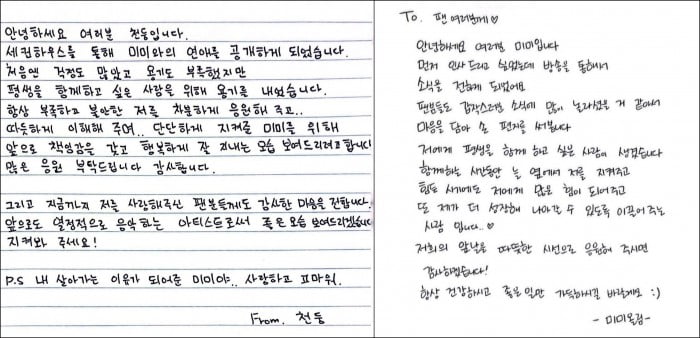 안녕하세요 여러분 천둥입니다.
세컨하우스를 통해 미미와의 연애를 공개하게 되었습니다.
처음엔 걱정도 많았고 용기도 부족했지만
평생을 함께하고 싶은 사람을 위해 용기를 내었습니다.
항상 부족하고 불안한 저를 차분하게 응원해 주고..
따듯하게 이해해 주며.. 단단하게 지켜준 미미를 위해
앞으로 책임감을 갖고 행복하게 잘 지내는 모습 보여드리려고 합니다
많은 응원 부탁드립니다 감사합니다.
그리고 지금까지 저를 사랑해주신 팬분들께도 감사한 마음을 전합니다.
앞으로도 열정적으로 음악하는 아티스트로써 좋은 모습 보여드리겠습니다
지켜봐 주세요!
P.S 내 살아가는 이유가 되어준 미미야.. 사랑하고 고마워.
From. 천둥
To. 팬 여러분께♡
안녕하세요 여러분 미미입니다
먼저 인사드리고 싶었는데 방송을 통해서
소식을 전하게 되었어요
팬분들도 갑작스러운 소식에 많이 놀라셨을 거 같아서
마음을 담아 손 편지를 써봅니다
저에게 평생을 함께 하고 싶은 사람이 생겼습니다
함께하는 시간동안 늘 옆에서 저를 지켜주고
힘든 시기에도 저에게 많은 힘이 되어주고
또 제가 더 성장해 나아갈 수 있도록 이끌어주는
사람 입니다..♡
저희의 앞날을 따뜻한 시선으로 응원해 주시면
감사하겠습니다!
항상 건강하시고 좋은 일만 가득하시길 바랄게요 :)
- 미미올림 -